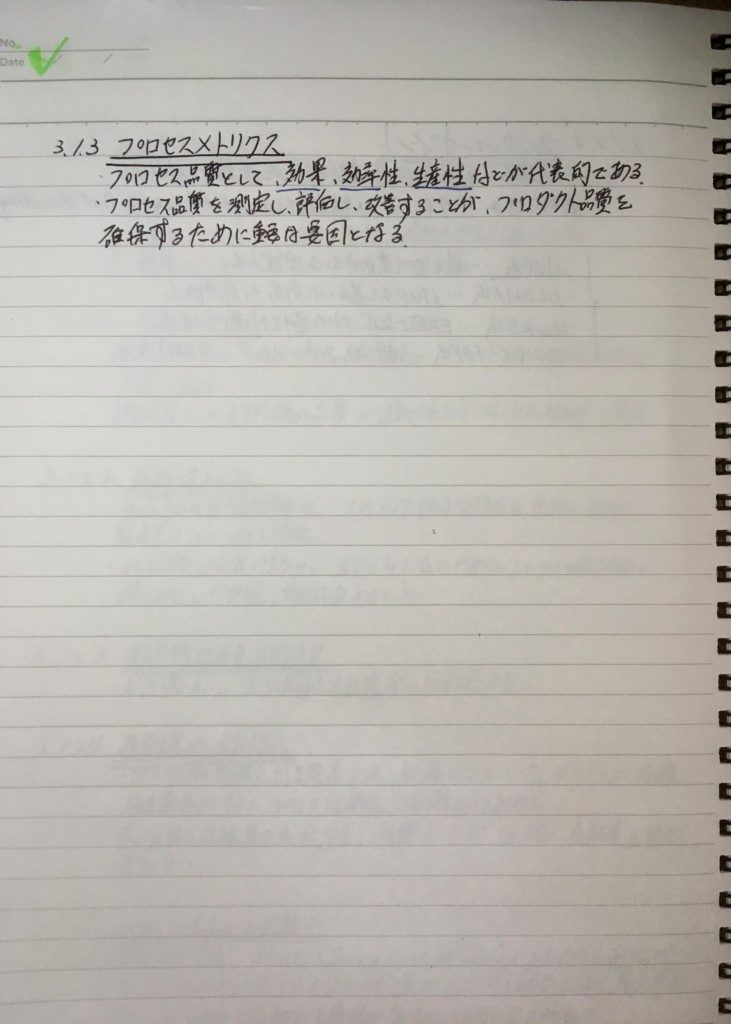 No.
Date
3.1.3 プロセスメトリクス
・プロセス品質として、効果、効率性、生産性などが代表的である。
・プロセス品質を測定し、評価し、改善することが、プロダクト品質を
確保するために重要な要因となる。